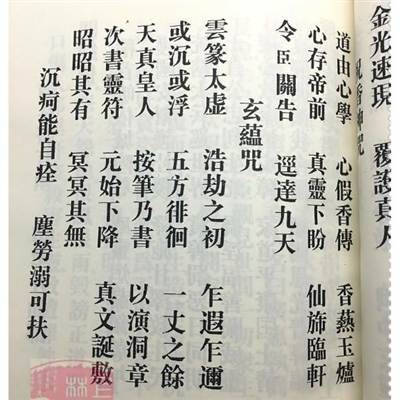 金光速現　覆護真人
祝香神咒
道由心學　心假香傳　香爇玉爐
心存帝前　真靈下盼　仙斾臨軒
令臣關告　逕達九天
玄蘊咒
雲篆太虛　浩劫之初　乍遐乍邇
或沉或浮　五方徘徊　一丈之餘
天真皇人　按筆乃書　以演洞章
次書靈符　元始下降　真文誕敷
昭昭其有　冥冥其無
沉疴能自痊　塵勞溺可扶